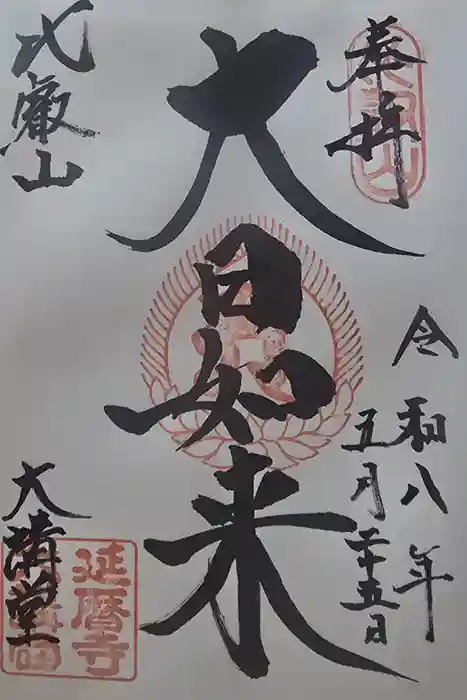 奉拝
令和八年
五月二十五日
大日如来
比叡山
大講堂
延暦寺